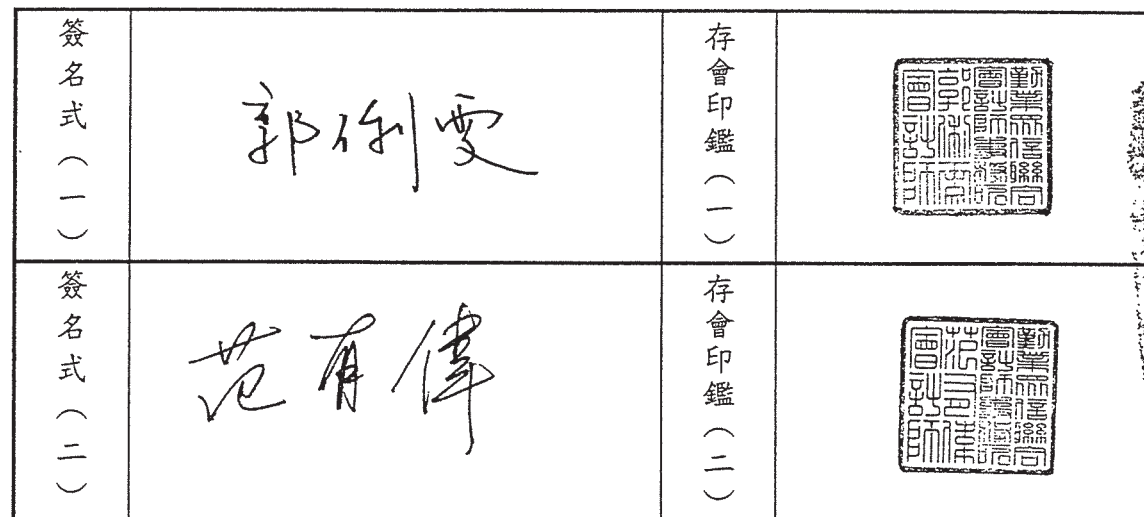 簽名式（一）
郭俐雯
存會印鑑（一）
勤業眾信聯合
會計師事務所
郭俐雯
會計師
簽名式（二）
范有偉
存會印鑑（二）
勤業眾信聯合
會計師事務所
范有偉
會計師